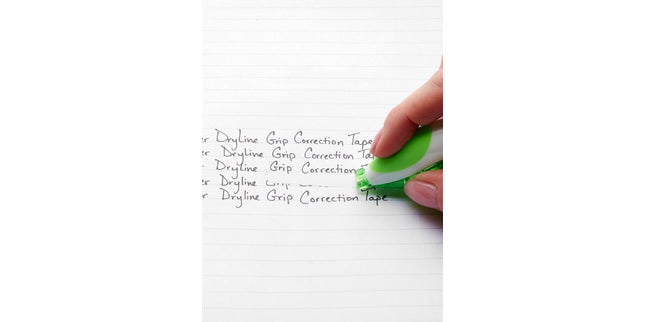 er DryLine Grip Correction Tape
er DryLine Grip Correction Ta
r DryLine Grip Correction T
er DryLine
r DryLine Grip Correction Tape